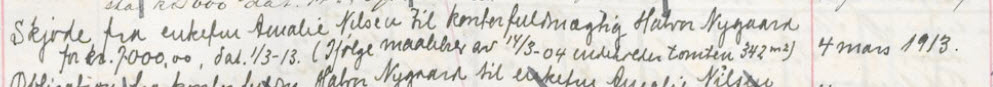 Skjøde fra enkefru Amalie Nilsen til kontorfuldmægtig Halvor Nygaard
for kr. 7000,00, dat. 1/3-13. (Ifølge maalebrev av 14/3-04 indeholder tomten 342 m²) 4 mars 1913.
Obligation fra kontorfuldm. Halvor Nygaard til enkefru Amalie Nilsen